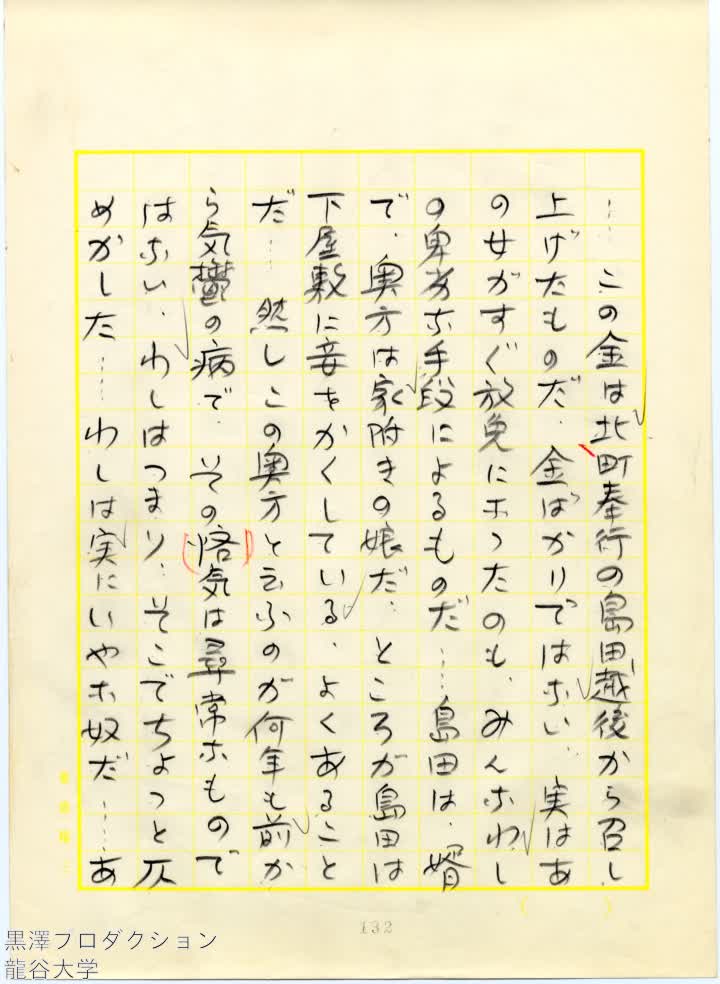 ……この金は北町奉行の島田越後から召し
上げたものだ、金ばかりではない、実はあ
の女がすぐ放免になつたのも、みんなわし
の卑劣な手段によるものだ……島田は、婿
で、奥方は家附きの娘だ、ところが島田は
下屋敷に妾をかくしている、よくあること
だ……然しこの奥方と云ふのが何年も前か
ら気鬱の病で、その悋気は尋常なもので
はない、わしはつまり、そこでちよつと仄
めかした……わしは実にいやな奴だ……あ
132
黒澤プロダクション
龍谷大学